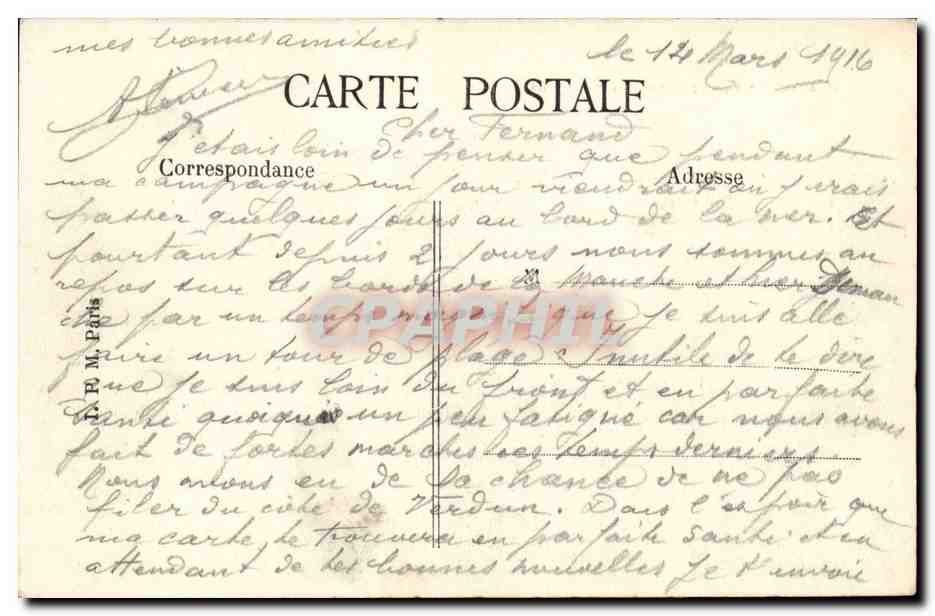 mes bonnes amities
le 14 Mars 1916
CARTE POSTALE
Cher Fernand
J'etais loin de penser que pendant
Correspondance
Adresse
ma campagne un jour viendrait ou j'irais
passer quelques jours au bord de la mer. Et
pourtant depuis 2 jours nous sommes au
repos sur les bords de la Manche et hier Diman
che par un temps que je suis allé
faire un tour de plage. Inutile de te dire
que je suis loin du front et en parfaite
santé quoique un peu fatigué car nous avons
fait de fortes marches ces temps derniers.
Nous avons eu de la chance de ne pas
filer du coté de Verdun. Dans l'espoir que
ma carte te trouvera en parfaite santé et en
attendant de tes bonnes nouvelles je t'envoie
I. P. M. Paris
CPAPHIL